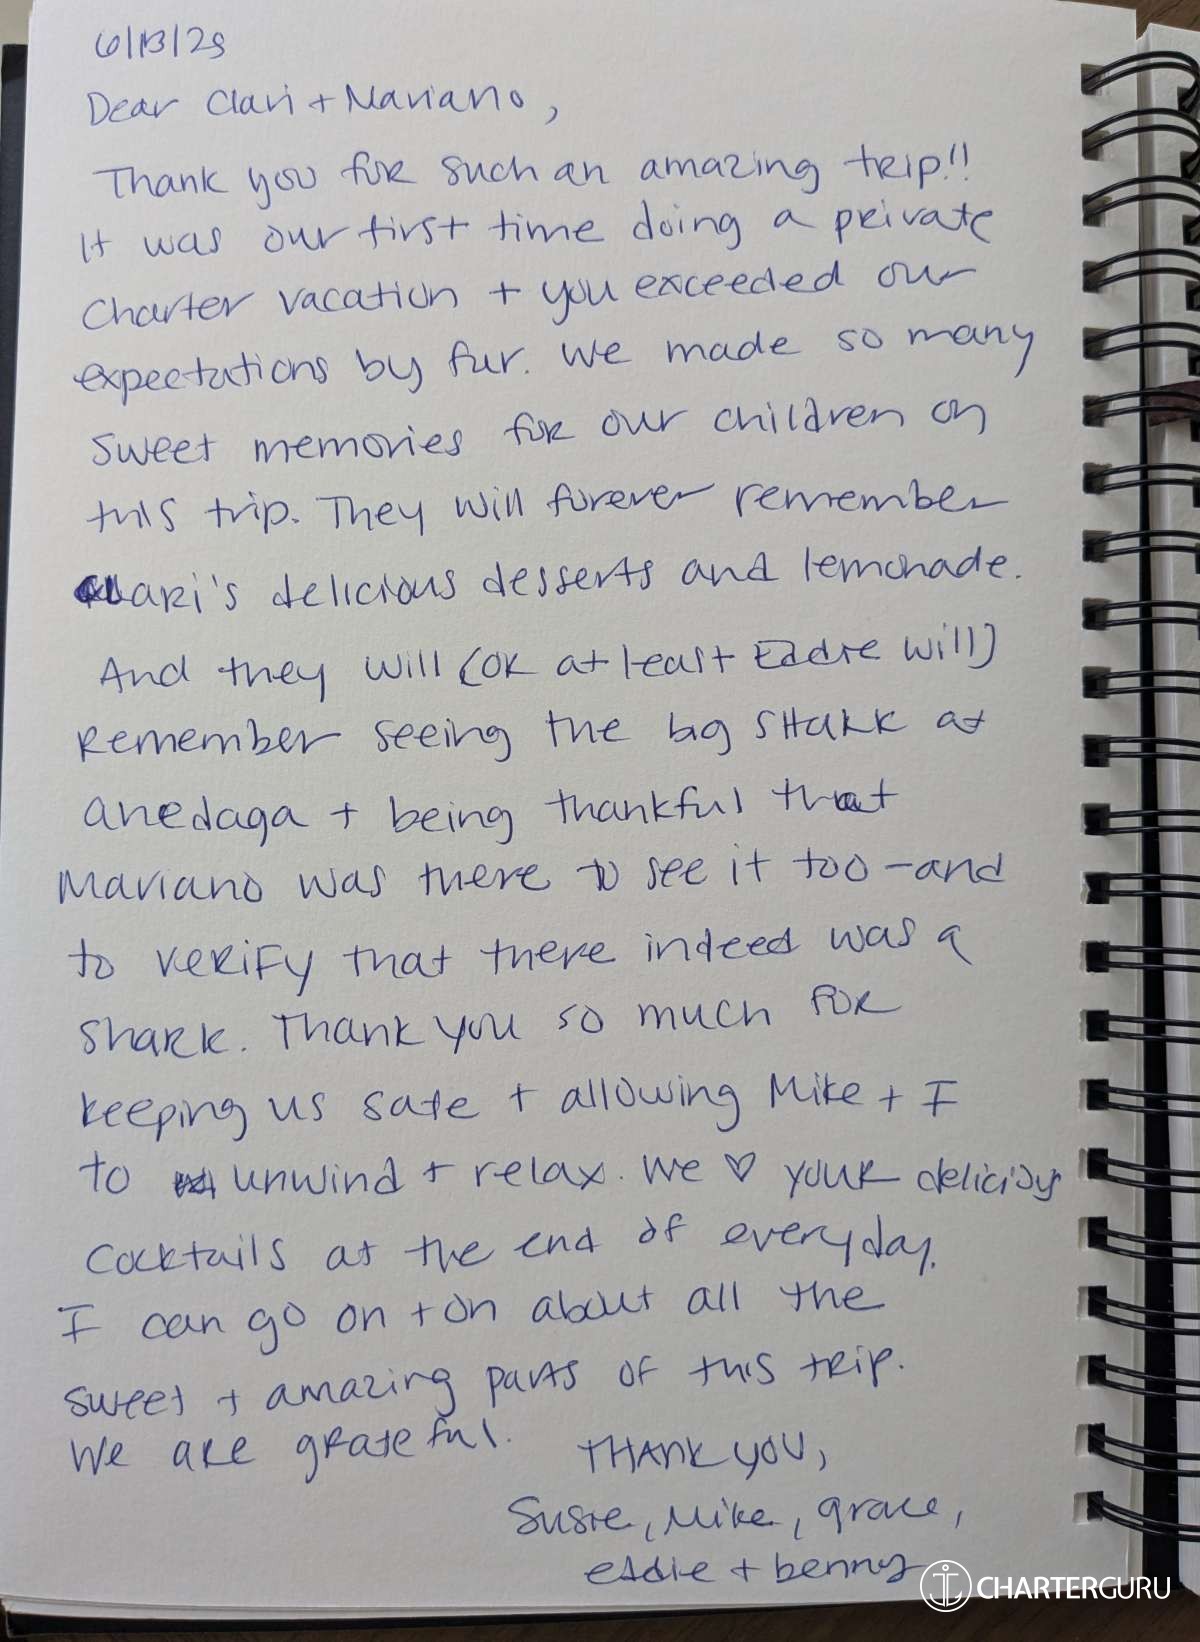 6/13/25
Dear Clari + Mariano,
Thank you for such an amazing trip!!
It was our first time doing a private
charter vacation + you exceeded our
expectations by far. We made so many
sweet memories for our children on
this trip. They will forever remember
Clari's delicious desserts and lemonade.
And they will (or at least Eddie will)
remember seeing the big shark at
anedaga + being thankful that
Mariano was there to see it too - and
to verify that there indeed was a
shark. Thank you so much for
keeping us safe + allowing Mike + I
to unwind + relax. We ♡ your delicious
cocktails at the end of everyday.
I can go on + on about all the
sweet + amazing parts of this trip.
We are grateful.
THANK YOU,
Susie, Mike, grace,
eddie + benny
CHARTERGURU